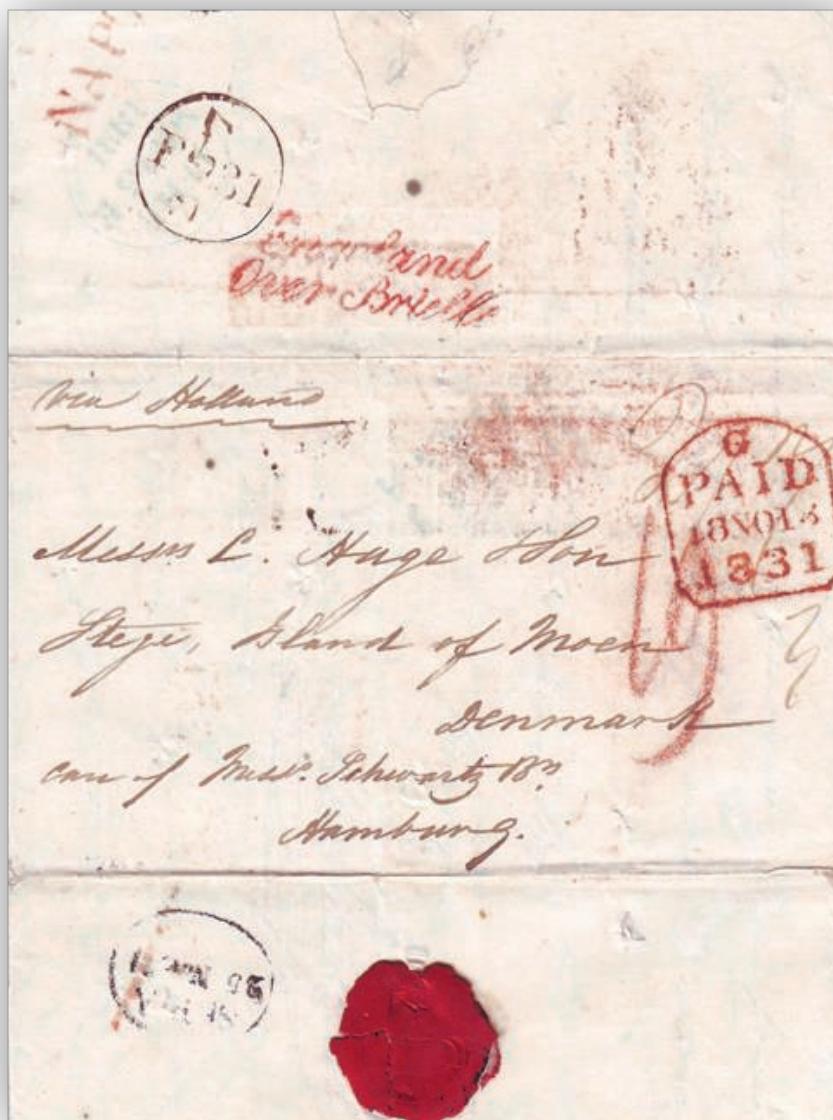 F 31
England
Over Brielle
via Holland
G
PAID
18 NO 18
1831
Messrs C. Hage & Son
Stege, Island of Moen
Denmark
care of Messrs. Schwartz Brs.
Hamburg.
25 NOV